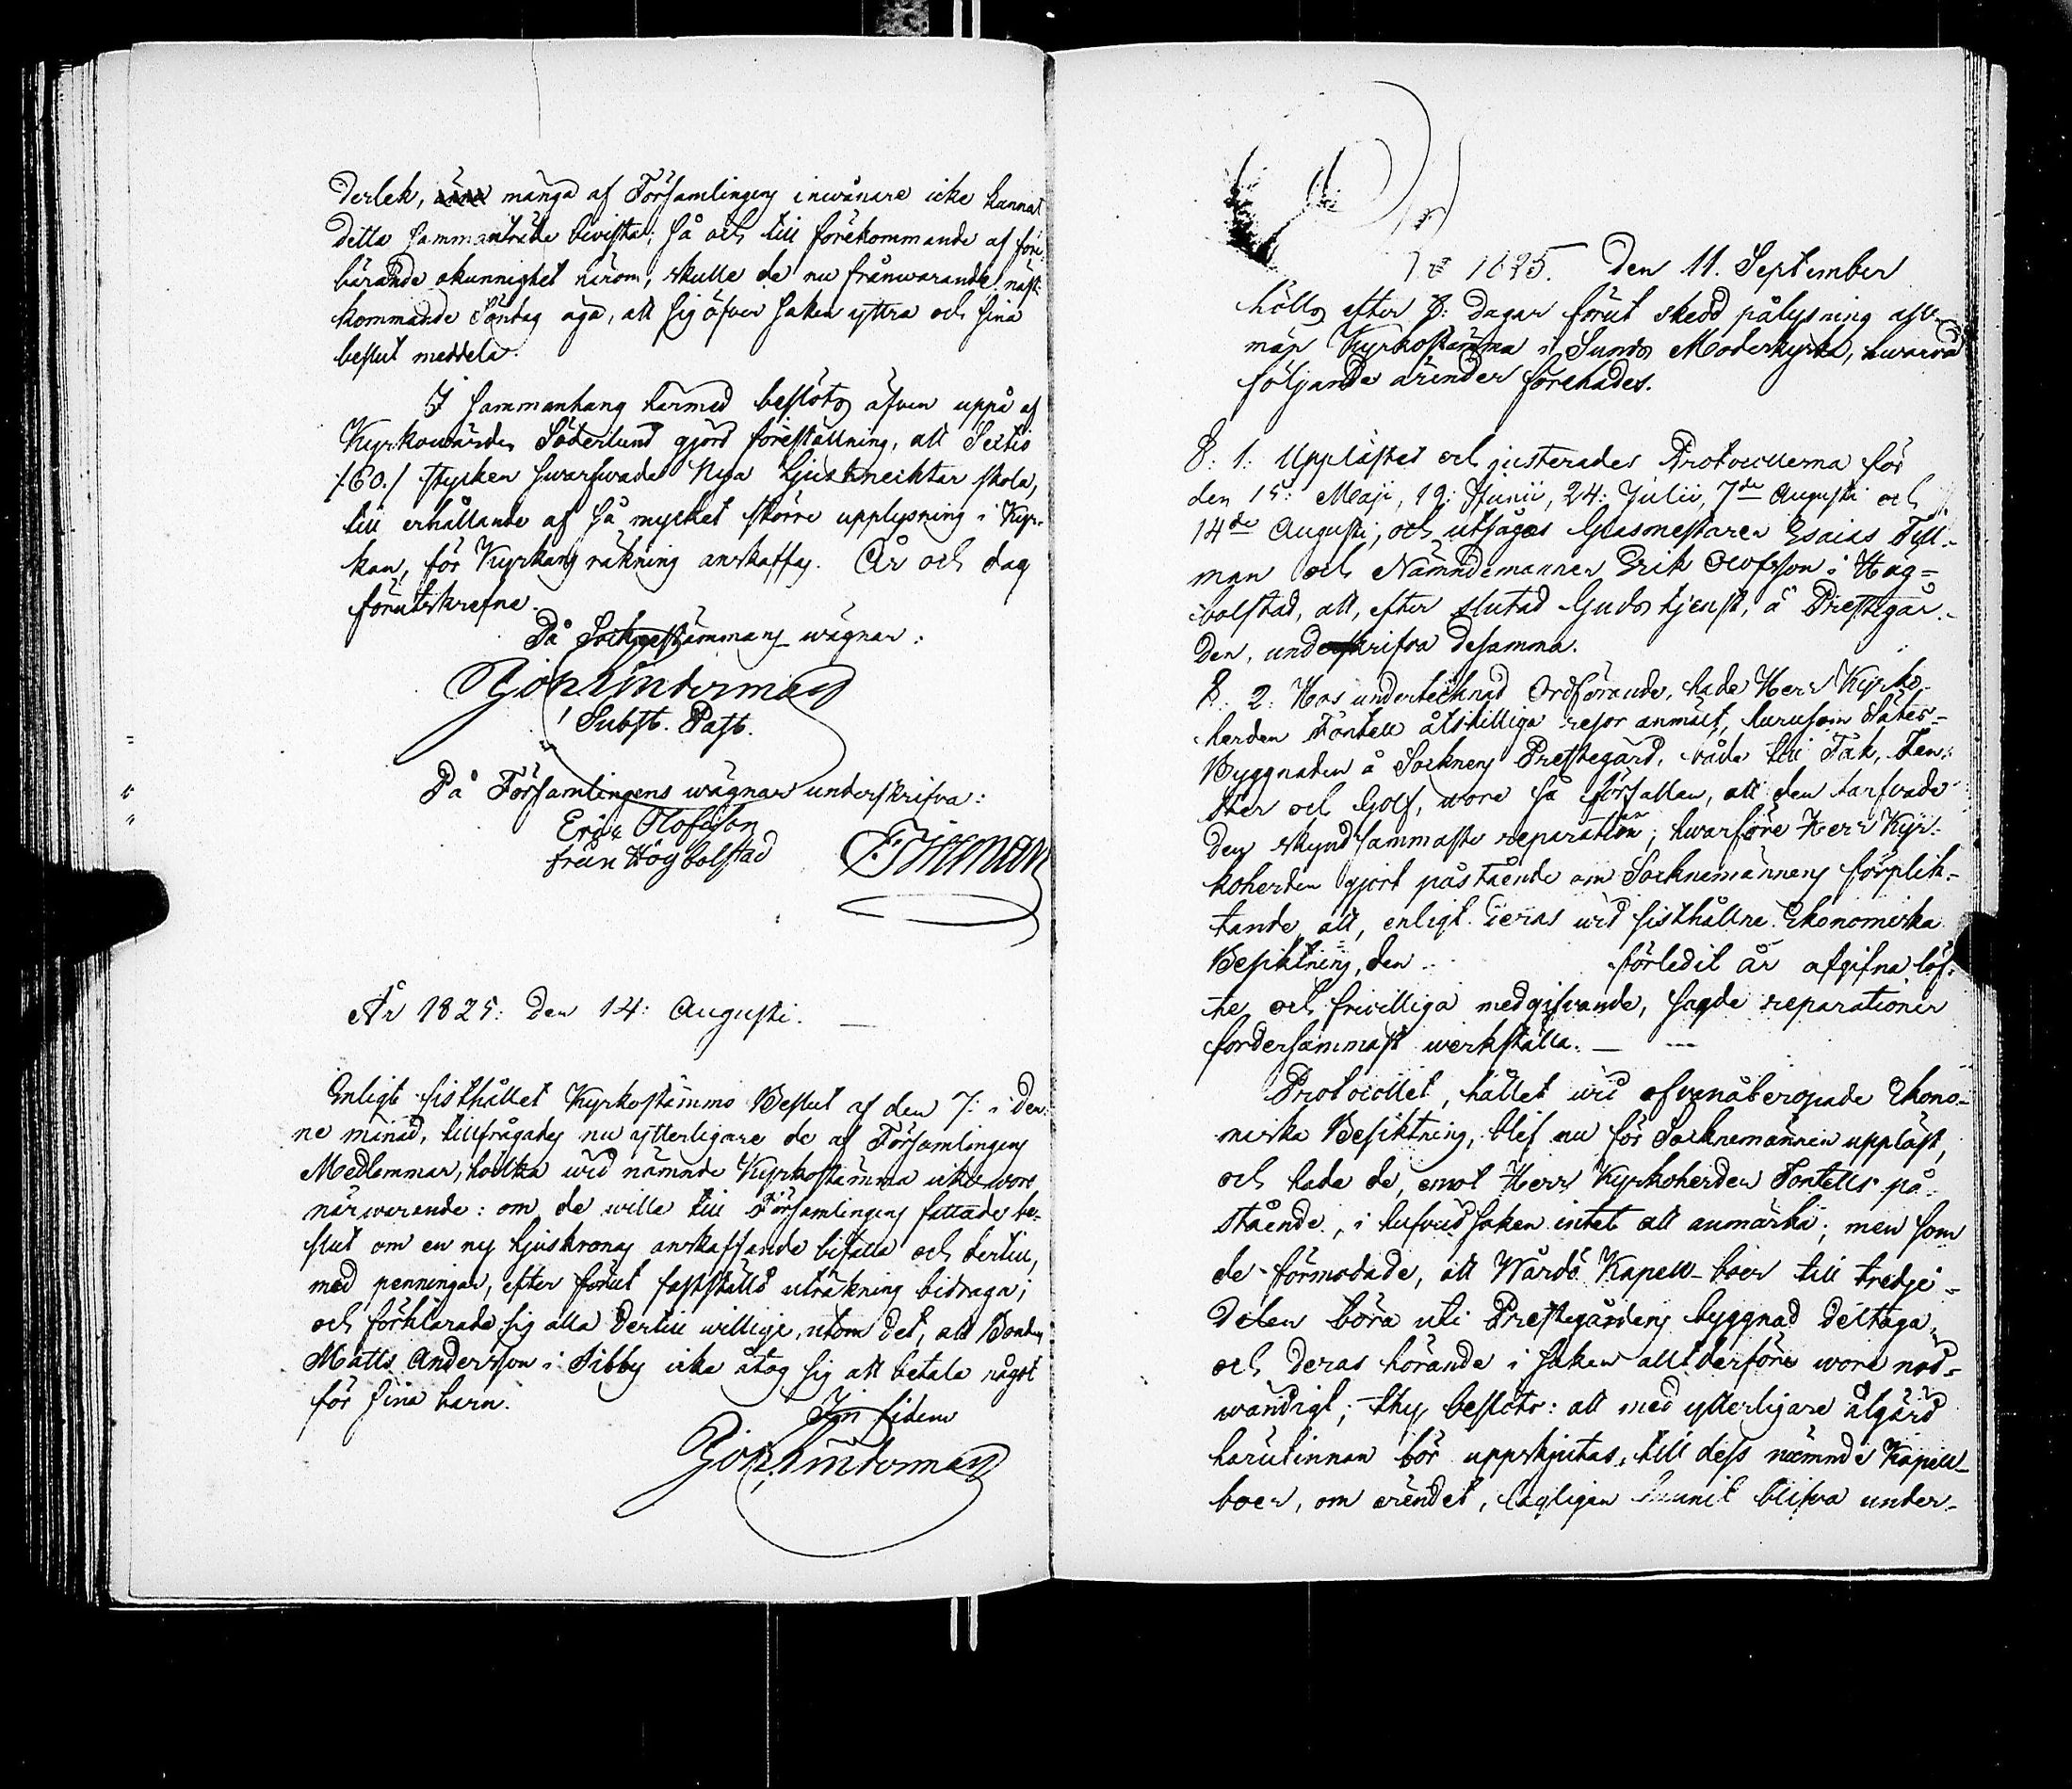 derlek, många af Församlingens inwånare icke kunnat
detta sammanträde bivista; så och till förekommande af före
bärande okunnighet härom, skulle de nu frånwarande näst-
kommande Söndag äga, att sig öfver saken yttra och sina
beslut meddela.
I sammanhang härmed beslöts äfven uppå af
Kyrkowärden Söderlund gjord föreställning, att Sextio
/60./ stycken swarfwade Nya Ljusknecktar skola,
till erhållande af så mycket större upplysning i Kyr-
kan, för Kyrkans räkning anskaffas. År och dag
förutskrefne.
På Sockne stämmans wägnar:
Joh Linderman
Subst. Past.
På Församlingens wägnar underskrifva:
Eric Olofsson
från Högbolstad
E Tillman
År 1825: den 14: Augusti.
Enligt sisthållet Kyrkostämmo Beslut af den 7: i den-
ne månad, tillfrågades nu ytterligare de af Församlingens
Medlemmar, hvilka wid nämnde Kyrkostämma icke wore
närwarande: om de wille till Församlingens fattade be-
slut om en ny ljuskronas anskaffande bifalla och dertill,
med penningar, efter förut fastställd uträkning bidraga;
och förklarade sig alla dertill willige, utom det, att Bonden
Matts Andersson i Tibby icke åtog sig att betala något
för sina barn.
In fidem
Joh Linderman
År 1825. den 11. September
hölls efter 8: dagar förut skedd pålysning all-
män Kyrkostämma i Sunds Moderkyrka, hwarvid
följande ärender förehades.
§: 1: Upplästes och justerades Protocollerna för
den 15: Maji, 19: Junii, 24: Julii, 7de Augusti och
14de Augusti, och utsågos Glasmestaren Esaias Till-
man och Nämndemannen Erik Olofsson i Hög=
bolstad, att, efter slutad Gudstjenst, å Prestegår-
den, underskrifva desamma.
§: 2: Hos undertecknad Ordförande, hade Herr Kyrko-
herden Fontell åtskilliga resor anmält, hurusom Säte=
Byggnaden å Socknens Prestegård, både till Tak, Fen-
ster och Golf, wore så förfallen, att den tarfvade
den skyndsammaste reparation; hwarföre Herr Kyr-
koherden gjort påstående om Sockenmännens förplik-
tande, att, enligt deras wid sisthållne Ekonomiska
Besiktning, den förledit år afgifna löf-
te och friwilliga medgifvande, sagde reparationer
fordersammast werkställa.
Protocollet, hållet wid ofvanåberopade Ekono-
miska Besiktning, blef nu för Sockenmännen uppläst,
och hade de, emot Herr Kyrkoherden Fontells på-
stående, i hufvudsaken intet att anmärka; men som
de förmodade, att Wårdö Kapell-boer till tredje-
delen böra uti Prestegårdens byggnad deltaga
och deras hörande i saken allt derföre wore nöd-
wändigt; thy beslöts: att med ytterligare åtgärd
härutinnan bör uppskjutas, till dess nämnde Kapell-
boer, om ärendet, lagligen hunnit blifva under-